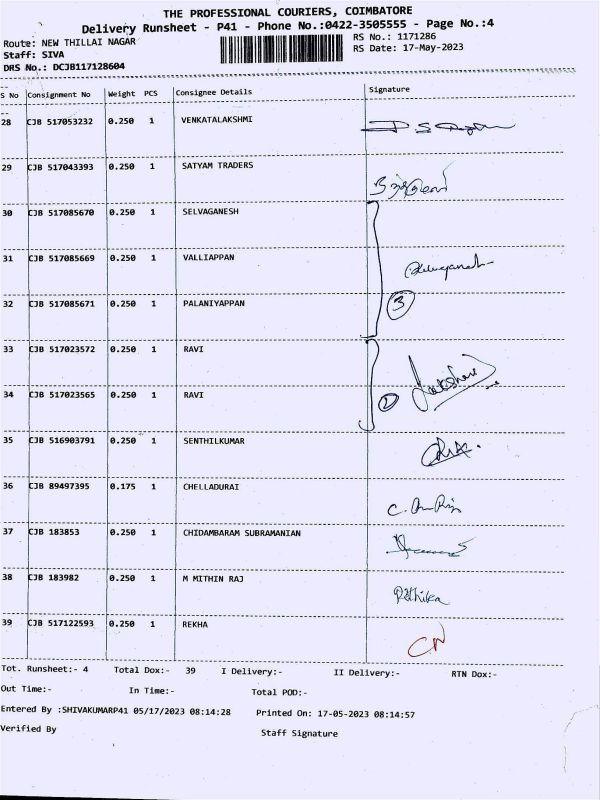 THE PROFESSIONAL COURIERS, COIMBATORE
Delivery Runsheet - P41 - Phone No.:0422-3505555 - Page No.:4
Route: NEW THILLAI NAGAR
RS No.: 1171286
Staff: SIVA
RS Date: 17-May-2023
DRS No.: DCJB117128604
S No Consignment No Weight PCS Consignee Details Signature
28 CJB 517053232 0.250 1 VENKATALAKSHMI
29 CJB 517043393 0.250 1 SATYAM TRADERS
30 CJB 517085670 0.250 1 SELVAGANESH
31 CJB 517085669 0.250 1 VALLIAPPAN
32 CJB 517085671 0.250 1 PALANIYAPPAN 3
33 CJB 517023572 0.250 1 RAVI
34 CJB 517023565 0.250 1 RAVI 2
35 CJB 516903791 0.250 1 SENTHILKUMAR
36 CJB 89497395 0.175 1 CHELLADURAI
37 CJB 183853 0.250 1 CHIDAMBARAM SUBRAMANIAN
38 CJB 183982 0.250 1 M MITHIN RAJ
39 CJB 517122593 0.250 1 REKHA CN
Tot. Runsheet:- 4 Total Dox:- 39 I Delivery:- II Delivery:- RTN Dox:-
Out Time:- In Time:- Total POD:-
Entered By :SHIVAKUMARP41 05/17/2023 08:14:28 Printed On: 17-05-2023 08:14:57
Verified By Staff Signature